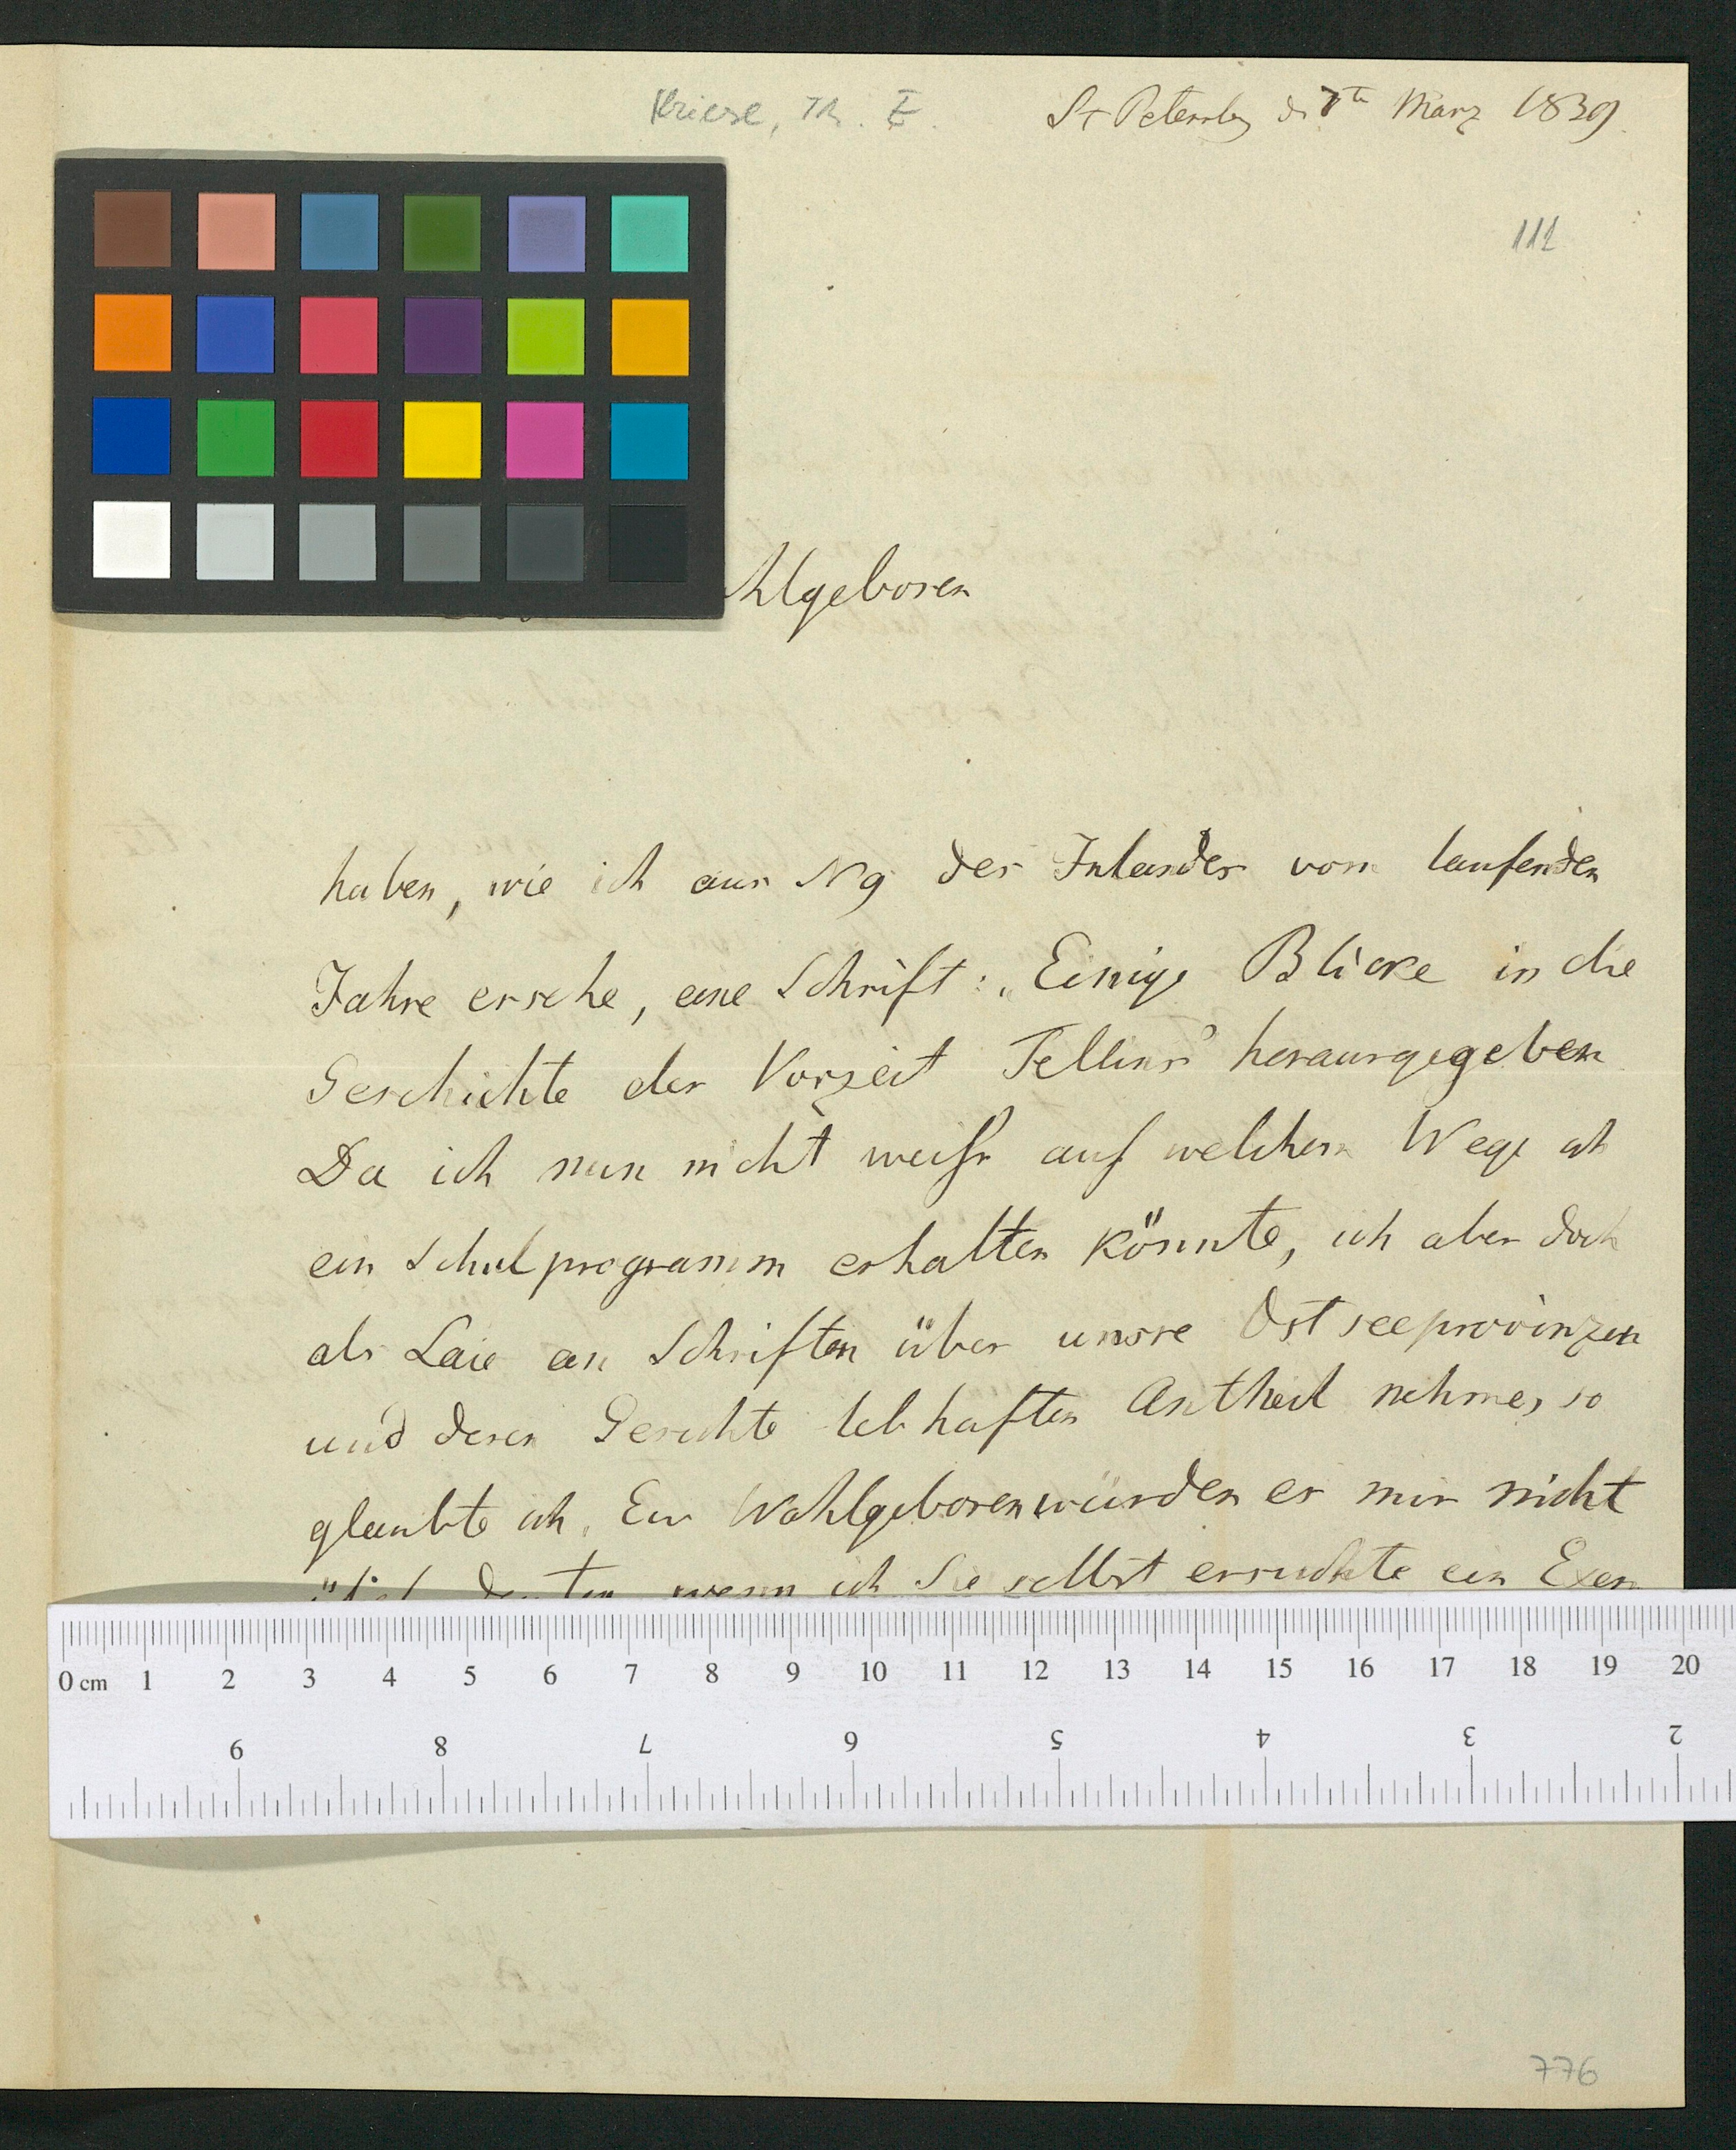 Kriese, Th. E.
St Petersbg d 7ten März 1839.
111
hlgeboren
haben, wie ich aus N 9 des Inlandes vom laufenden
Jahre ersehe, eine Schrift: „Einige Blicke in die
Geschichte der Vorzeit Fellins“ herausgegeben
Da ich nun nicht weiß auf welchem Wege ich
ein Schulprogramm erhalten könnte, ich aber doch
als Laie an Schriften über unsre Ostseeprovinzen
und deren Geschichte lebhaften Antheil nehme, so
glaubte ich, Ew Wohlgeboren würden es mir nicht
übel deuten wenn ich Sie selbst ersuchte ein Exem
0 cm 1 2 3 4 5 6 7 8 9 10 11 12 13 14 15 16 17 18 19 20
9 8 7 6 5 4 3 2
776